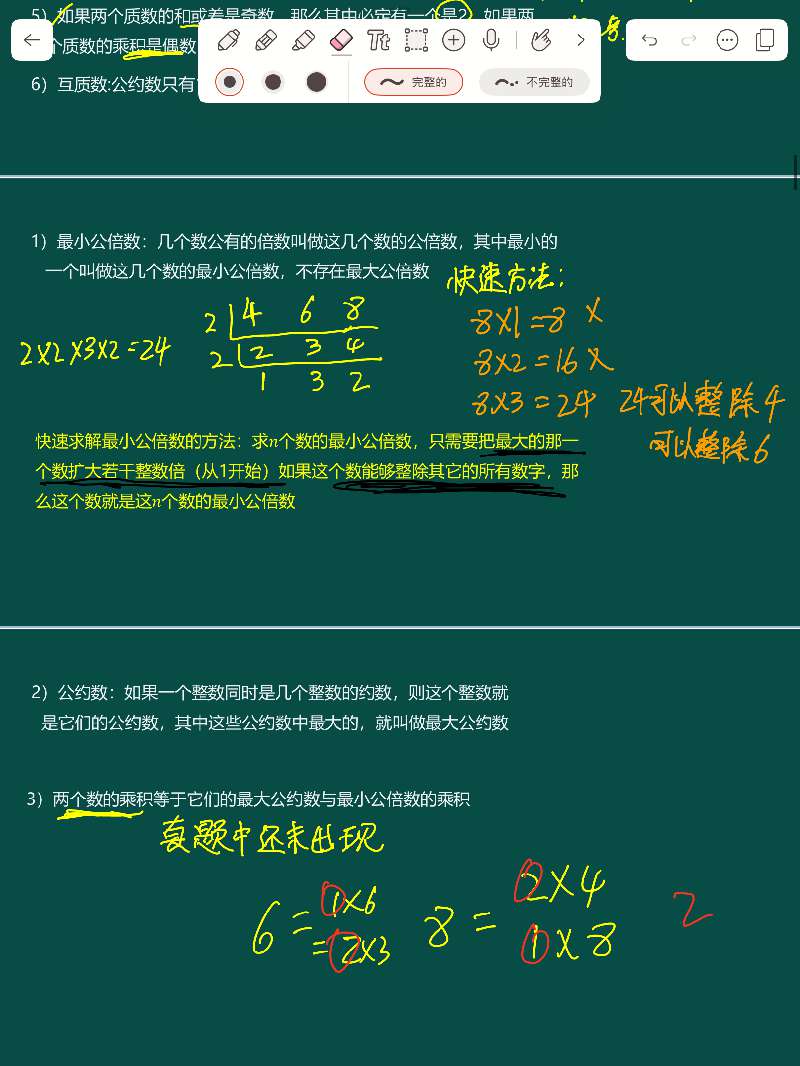 5）如果两个质数的和或差是奇数，那么其中必定有一个是2，如果两
个质数的乘积是偶数
Tt
完整的
不完整的
6）互质数:公约数只有
1）最小公倍数：几个数公有的倍数叫做这几个数的公倍数，其中最小的
一个叫做这几个数的最小公倍数，不存在最大公倍数
快速方法：
2 4 6 8
8×1=8 ×
2×2×3×2=24
2 2 3 4
8×2=16 ×
1 3 2
8×3=24 24可以整除4
可以整除6
快速求解最小公倍数的方法：求n个数的最小公倍数，只需要把最大的那一
个数扩大若干整数倍（从1开始）如果这个数能够整除其它的所有数字，那
么这个数就是这n个数的最小公倍数
2）公约数：如果一个整数同时是几个整数的约数，则这个整数就
是它们的公约数，其中这些公约数中最大的，就叫做最大公约数
3）两个数的乘积等于它们的最大公约数与最小公倍数的乘积
真题中还未出现
6=1×6
=2×3
8=2×4
1×8
2